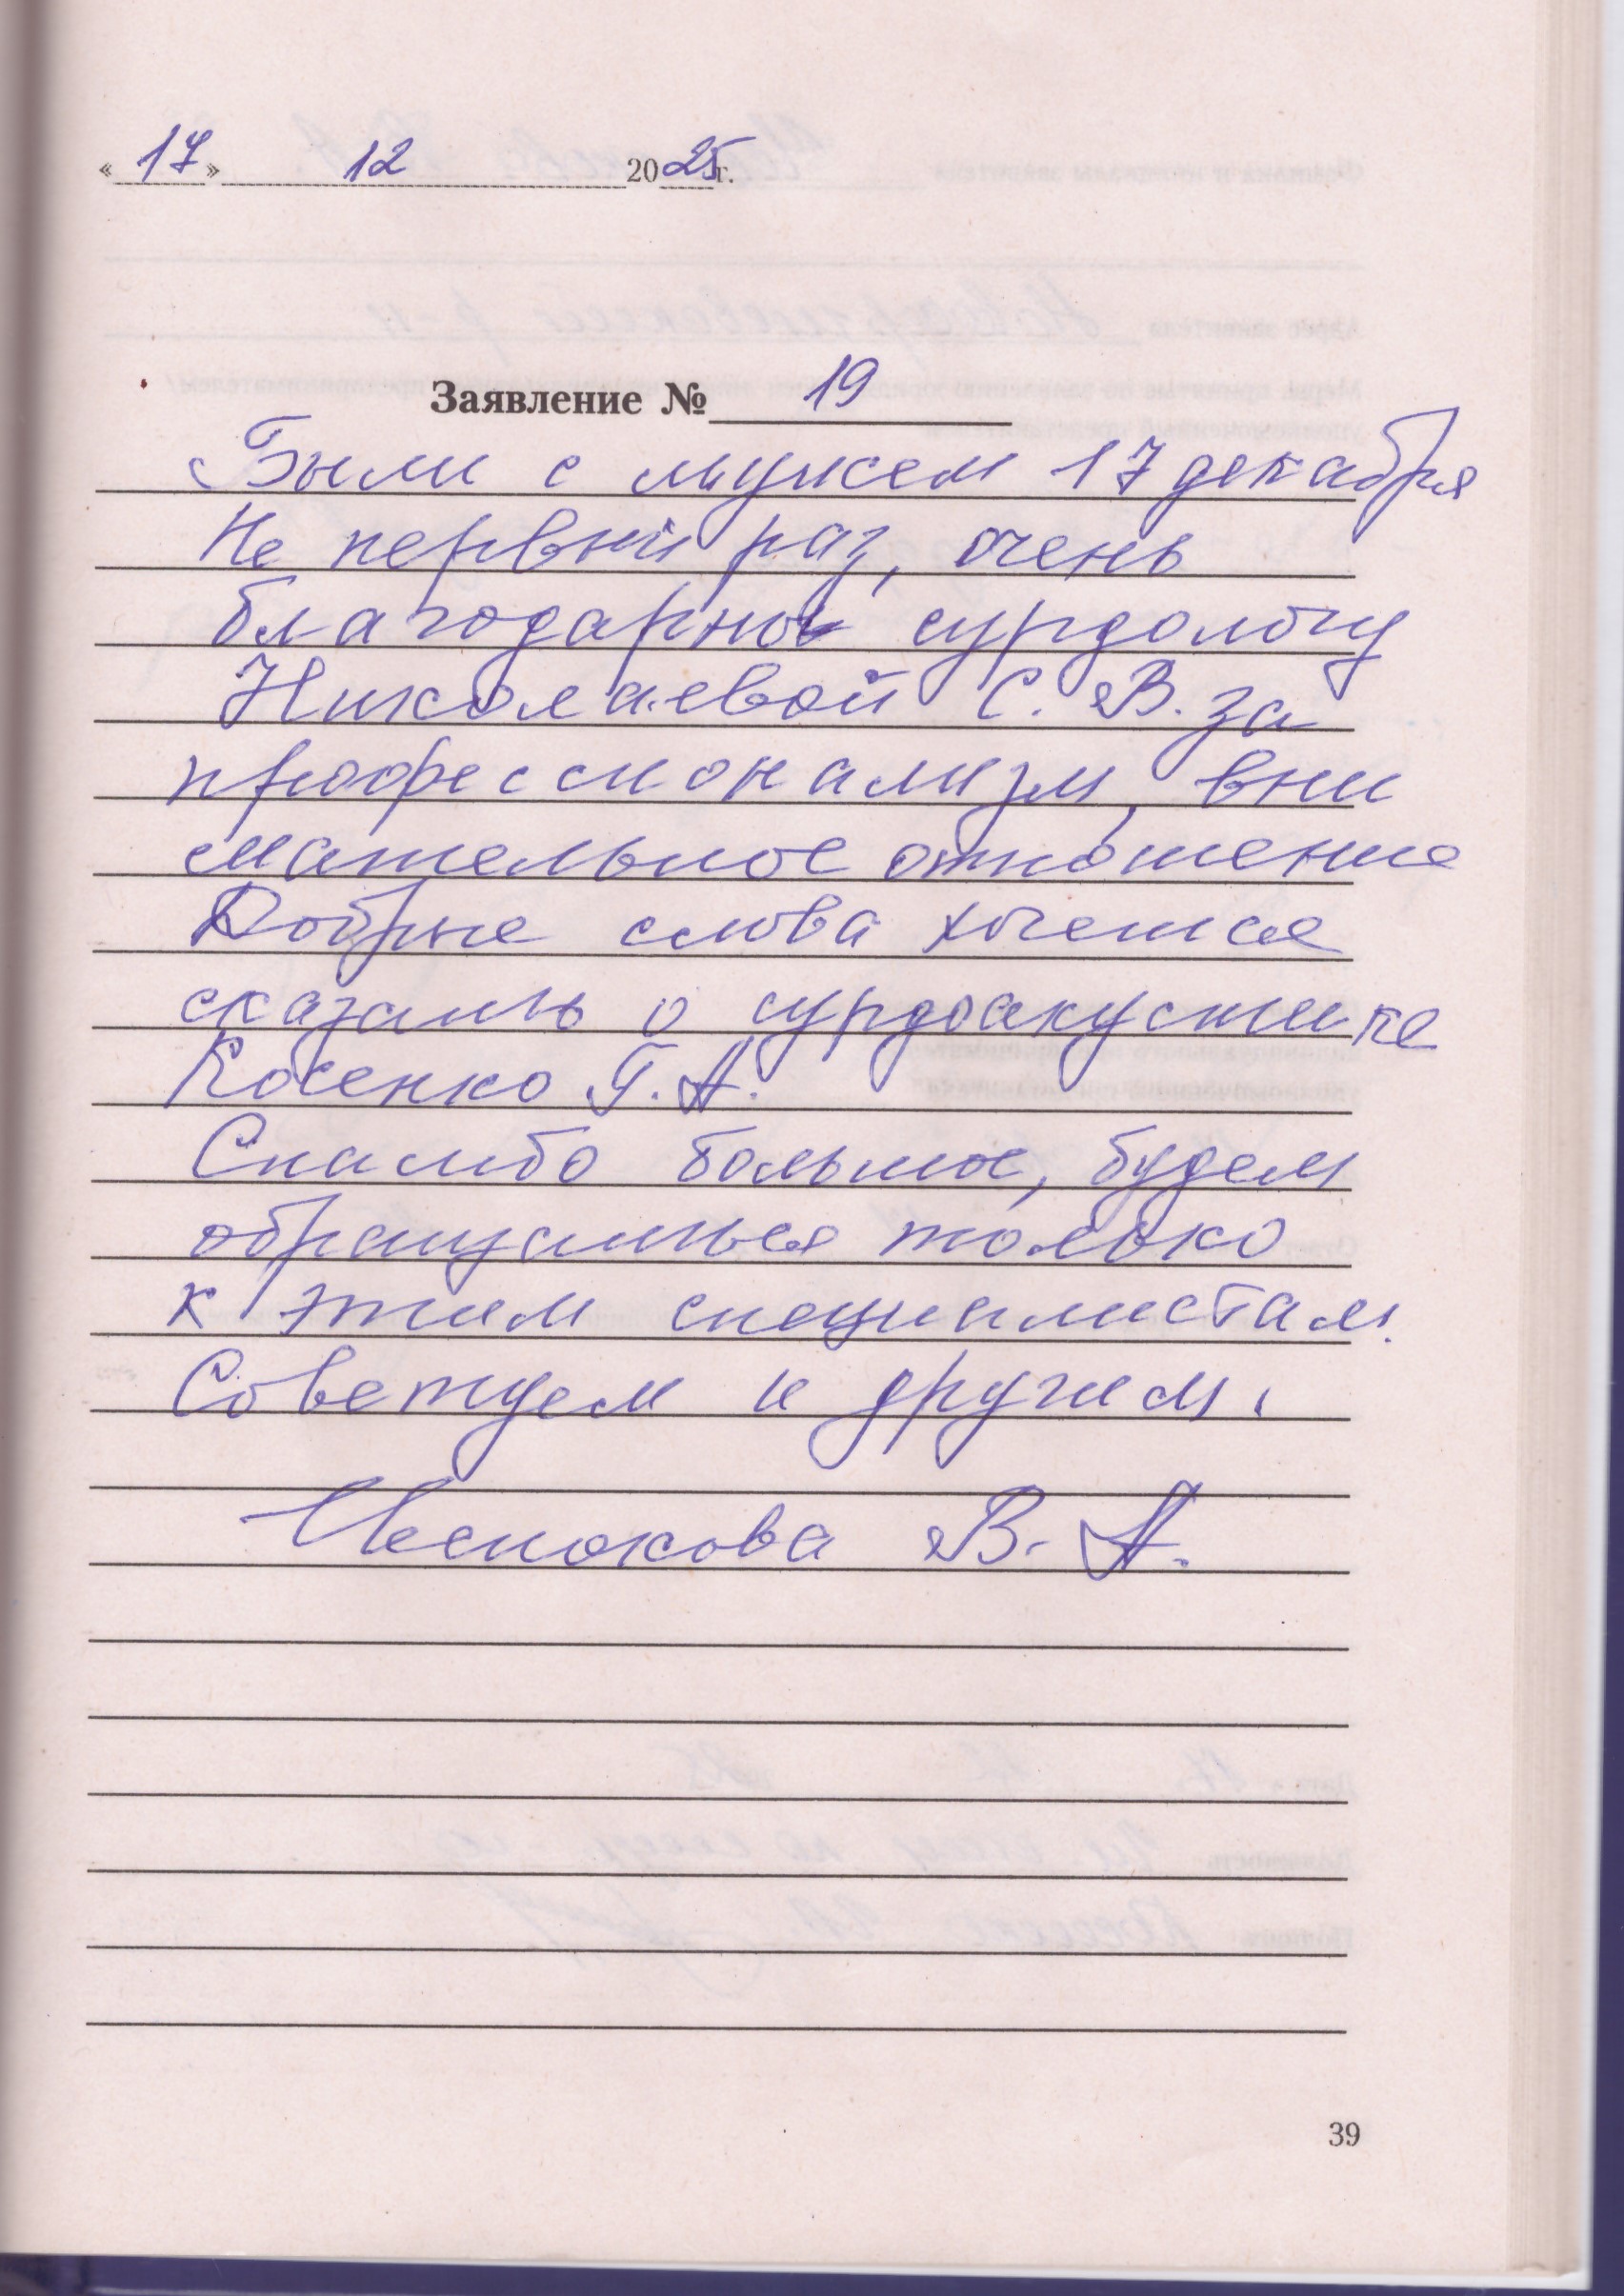 «17» 12 2025г.
Заявление № 19
Были с мужем 17 декабря
Не первый раз, очень
благодарны сурдологу
Николаевой С. В. за
профессионализм, вни
мательное отношение
Добрые слова хочется
сказать о сурдоакустике
Косенко Г. А.
Спасибо большое, будем
обращаться только
к этим специалистам.
Советуем и другим.
В. А.
39